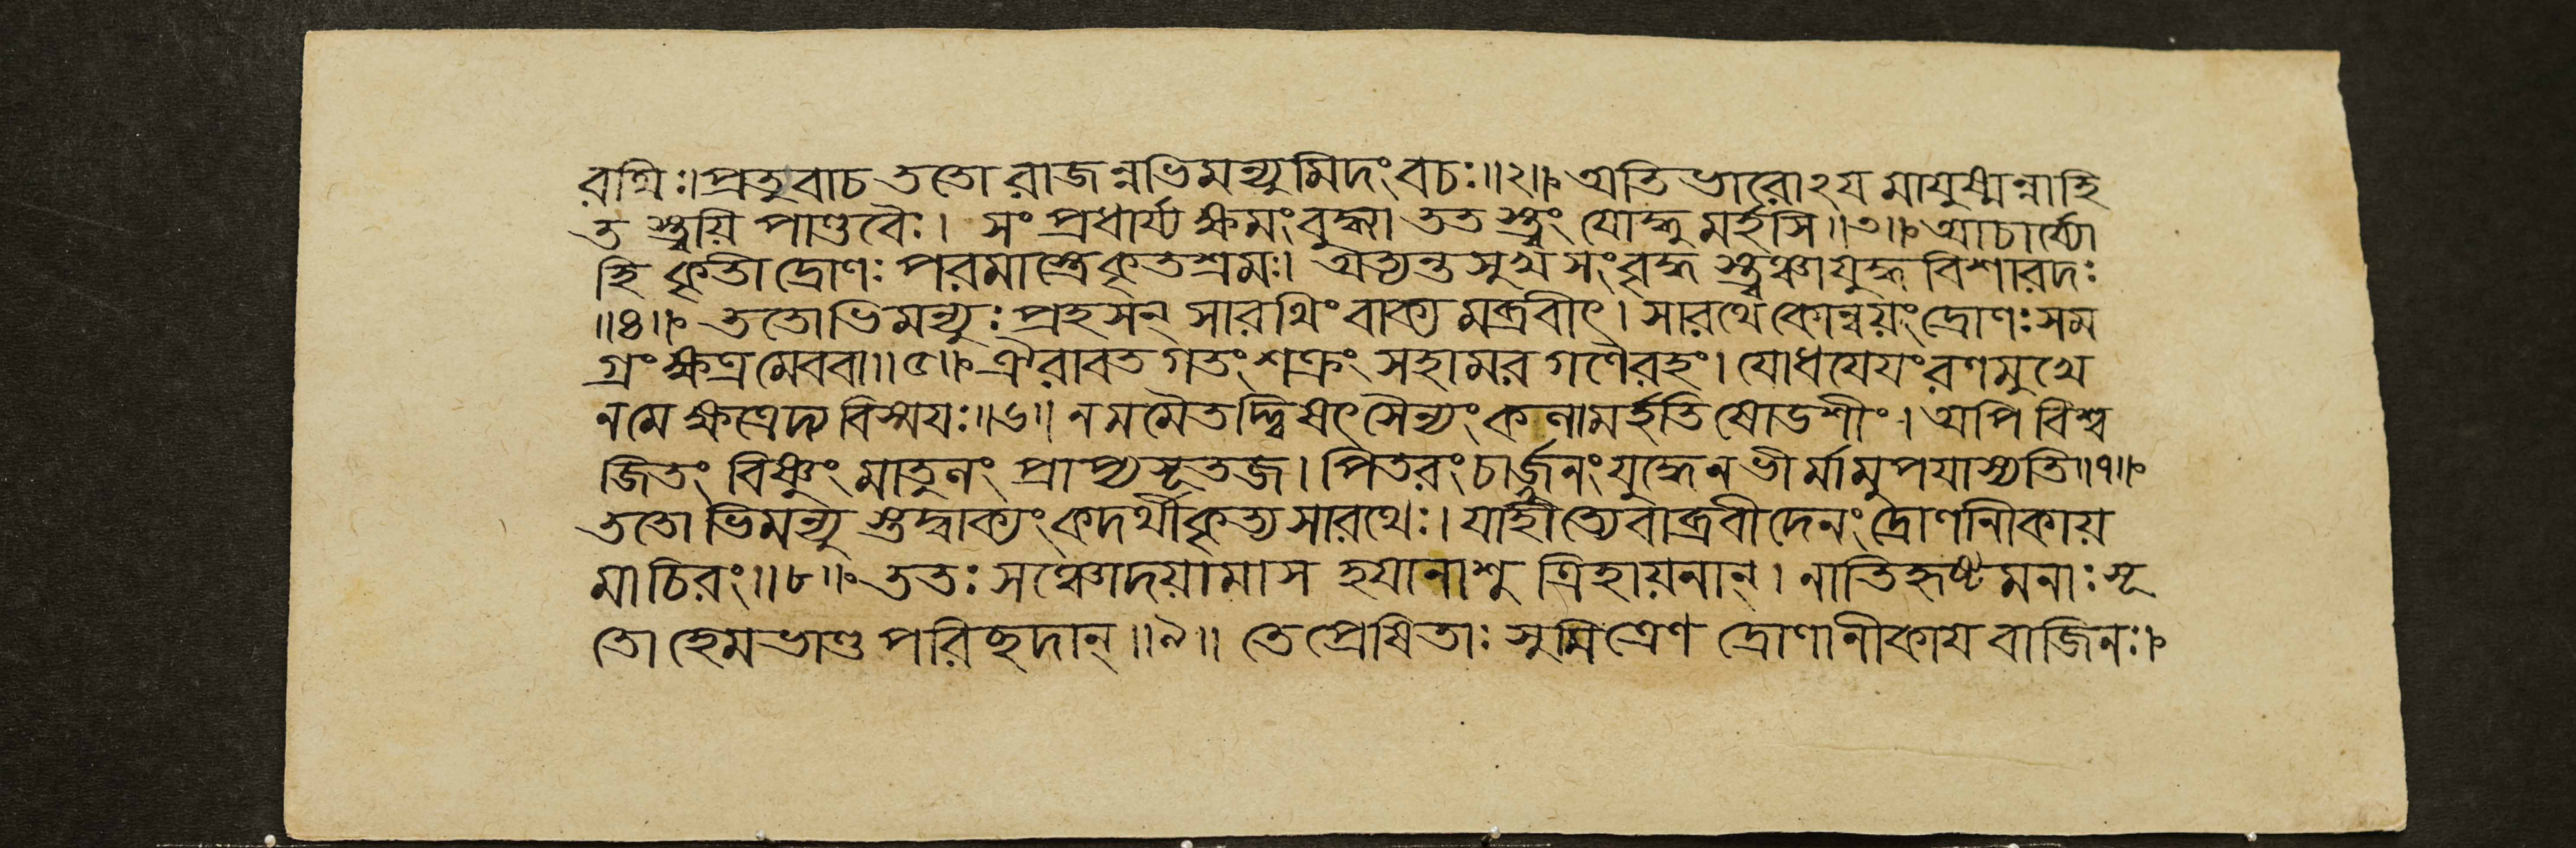 রথিঃ।প্রত্যুবাচ ততো রাজন্নভিমন্যুমিদংবচঃ॥২॥ অতি ভারোঽয মাযুষ্মন্নাহি
ত স্ত্বয়ি পাণ্ডবৈঃ। সং প্রধার্য্য ক্ষমংবুদ্ধ্বা ততস্ত্বং যোদ্ধু মর্হসি॥৩॥ আচার্য্যো
হি কৃতী দ্রোণঃ পরমাস্ত্রেকৃতশ্রমঃ। অত্যন্ত সুখ সংবৃদ্ধ স্ত্বঞ্চাযুদ্ধ বিশারদঃ
॥৪॥ ততোভিমন্যুঃ প্রহসন্ সারথিং বাক্য মব্রবীৎ। সারথে কোন্বয়ংদ্রোণঃ সম
গ্রং ক্ষত্রমেববা॥৫॥ ঐরাবত গতংশক্রং সহামর গণৈরহং। যোধযেযংরণমুখে
নমে ক্ষত্রেদ্য বিস্ময়ঃ॥৬॥ নমমৈতদ্দ্বিষৎসৈন্যং কলামর্হতি ষোডশীং। অপি বিশ্ব
জিতং বিষ্ণুং মাতুলং প্রাপ্যসূতজ। পিতরং চার্জুনংযুদ্ধেন ভীর্মামুপযাস্যতি॥৭॥
ততোভিমন্যু স্তদ্বাক্যং কদর্থীকৃত্য সারথেঃ। যাহীত্যেবাব্রবীদেনং দ্রোণানীকায়
মাচিরং॥৮॥ ততঃ সঞ্চোদয়ামাস হযানাশু ত্রিহায়নান্। নাতিহৃষ্টমনাঃ সূ
তো হেমভাণ্ড পরিছদান্॥৯॥ তে প্রেষিতাঃ সুমিত্রেণ দ্রোণানীকায বাজিনঃ।